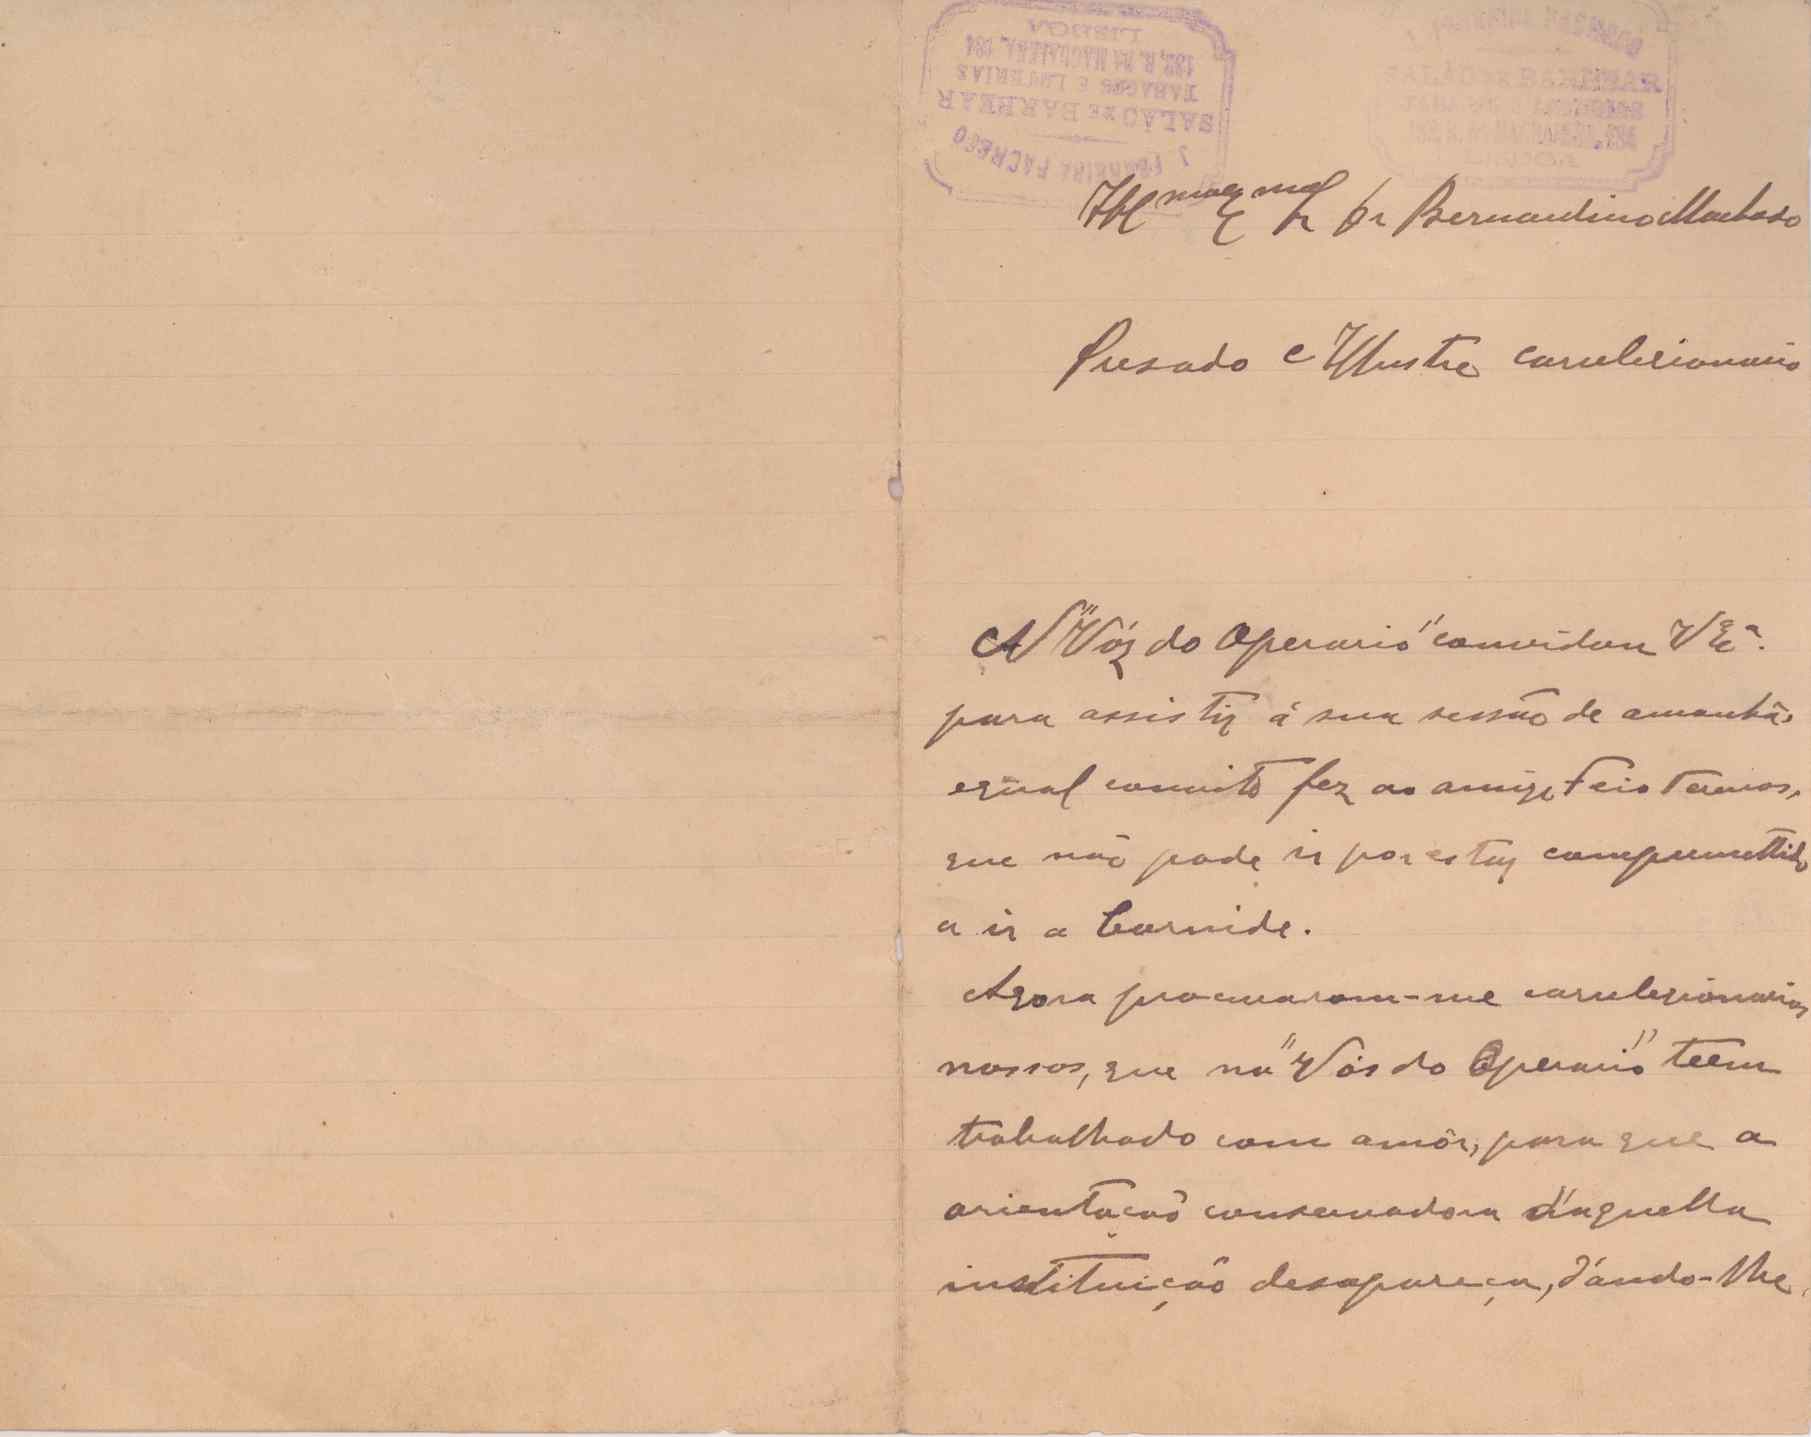 J. FERREIRA PACHECO
SALÃO DE BARBEAR
TABACOS E LOTERIAS
182, R. DA MAGDALENA, 184
LISBOA
SALÃO DE BARBEAR
182, R. DA MAGDALENA, 184
LISBOA
Illmo Exmo Sr Dr Bernardino Machado
Presado e Illustre correlegionario
A "Vóz do Operario" convidou V Exª.
para assistir á sua sessão de amanhã,
egual convite fez ao amigo Feio Terenas,
que não pode ir por estar compromettido
a ir a Carnide.
Agora procuraram-me correlegionarios
nossos, que na "Vós do Operario" teem
trabalhado com amôr, para que a
orientação conservadora d'aquella
instituição desapareça, dando-lhe